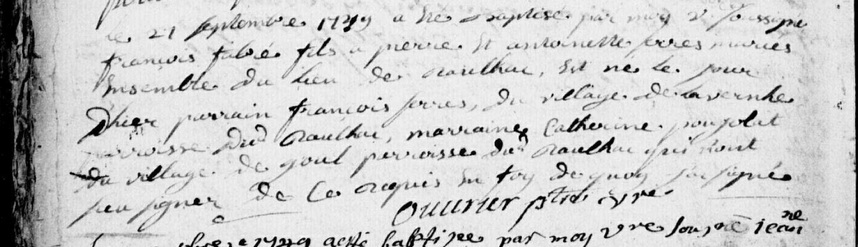 le 21 septembre 1749 a été baptisé par moy v soussigné
françois fabré fils a pierre Et antoinette serres mariés
Ensemble du lieu de Raulhac, Est né le jour
Dhier parrain françois serres, du village de lavernhe
parroisse dud Raulhac, marraine Catherine poujolat
du village de goul perroisse dud Raulhac qui n'ont
seu signer de ce Requis En foy de quoy soussigné
Ouurier ptre vre
1749 a esté baptisée par moy vre soussigné jean